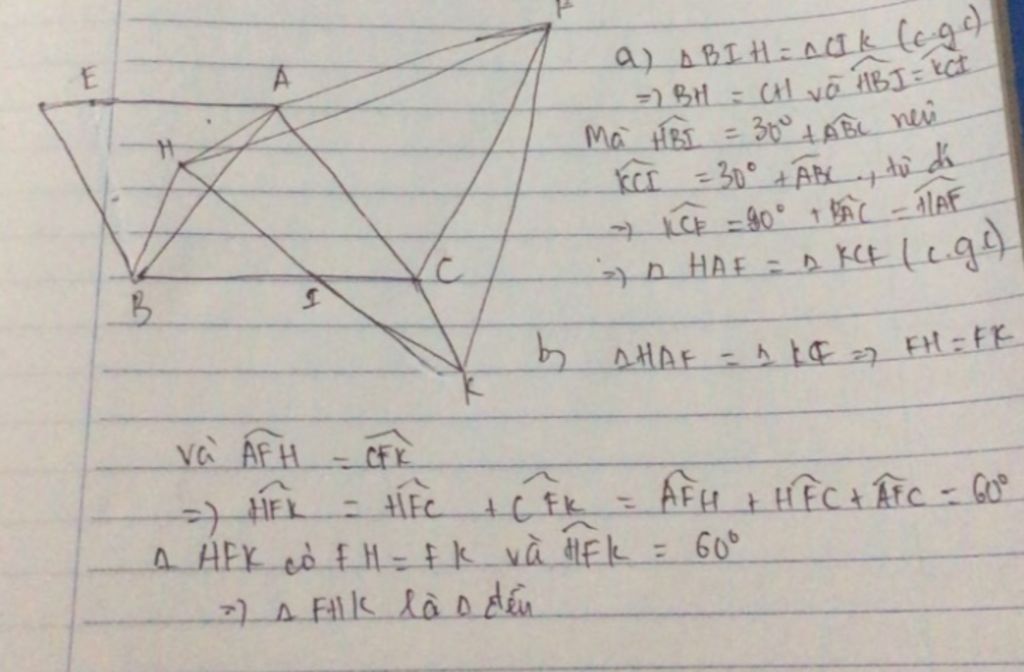 F
E
A
H
B
I
C
K
a) △BIH = △CIK (c.g.c)
=> BH = CH và \widehat{HBI} = \widehat{KCI}
Mà \widehat{HBI} = 30° + \widehat{ABC} nên
\widehat{KCI} = 30° + \widehat{ABC}, từ đó
=> \widehat{KCF} = 90° + \widehat{BAC} = \widehat{HAF}
=> △ HAF = △ KCF (c.g.c)
b) △HAF = △ KCF => FH = FK
Và \widehat{AFH} = \widehat{CFK}
=> \widehat{HFK} = \widehat{HFC} + \widehat{CFK} = \widehat{AFH} + \widehat{HFC} + \widehat{AFC} = 60°
△ HFK có FH = FK và \widehat{HFK} = 60°
=> △ FHK là △ đều